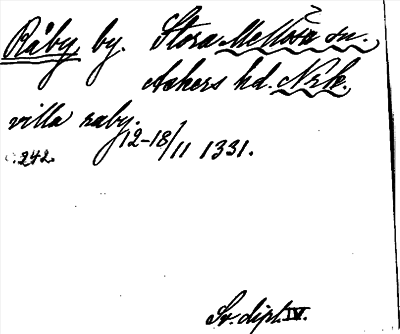 Råby, by. Stora Mellösa sn.
Askers hd. Nrk.
villa raby.
s. 242. 12-18/11 1331.
Sv. dipl. IV.